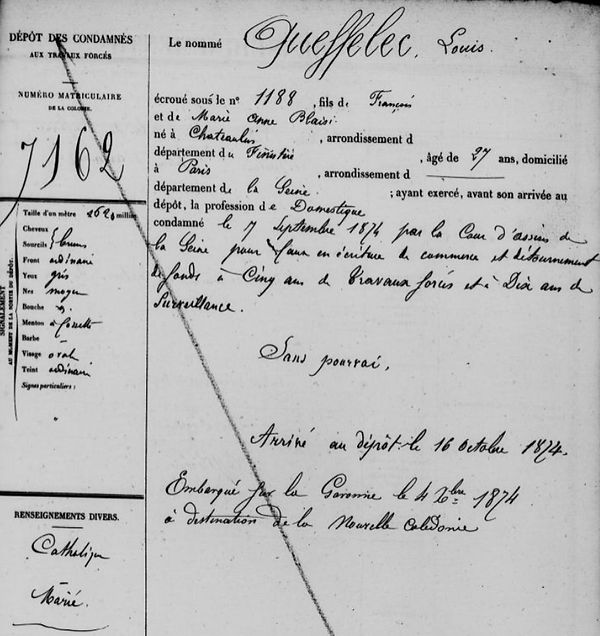 DÉPÔT DES CONDAMNÉS
AUX TRAVAUX FORCÉS
NUMÉRO MATRICULAIRE
DE LA COLONIE.
7162
Taille d'un mètre 2620 millim
Cheveux
Sourcils } bruns
Front ordinaire
Yeux gris
Nez moyen
Bouche id.
Menton à fossette
Barbe
Visage oval
Teint ordinaire
Signes particuliers :
SIGNALEMENT
AU MOMENT DE LA SORTIE DU DÉPÔT.
RENSEIGNEMENTS DIVERS.
Catholique
Marié.
Le nommé Queffelec, Louis.
écroué sous le nº 1188, fils de François
et de Marie Anne Blaise
né à Chateaulin, arrondissement d
département du Finistère, âgé de 27 ans, domicilié
à Paris, arrondissement d
département de la Seine ; ayant exercé, avant son arrivée au
dépôt, la profession de Domestique
condamné le 7 Septembre 1874 par la Cour d'assises de
la Seine pour faux en écriture de commerce et détournement
de fonds à Cinq ans de Travaux forcés et à Dix ans de
Surveillance.
Sans pourvoi.
Arrivé au dépôt le 16 octobre 1874.
Embarqué sur la Garonne le 4 Xbre 1874
à destination de la Nouvelle Calédonie